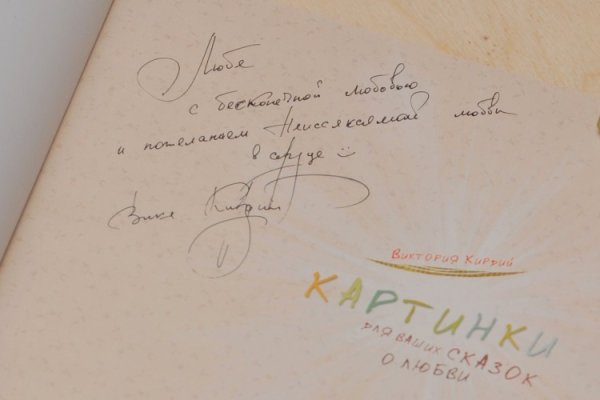 Любе
с бесконечной любовью
и пожеланием Неиссякаемой любви
в сердце :)
Вика Кирдий
ВИКТОРИЯ КИРДИЙ
КАРТИНКИ
ДЛЯ ВАШИХ СКАЗОК
О ЛЮБВИ